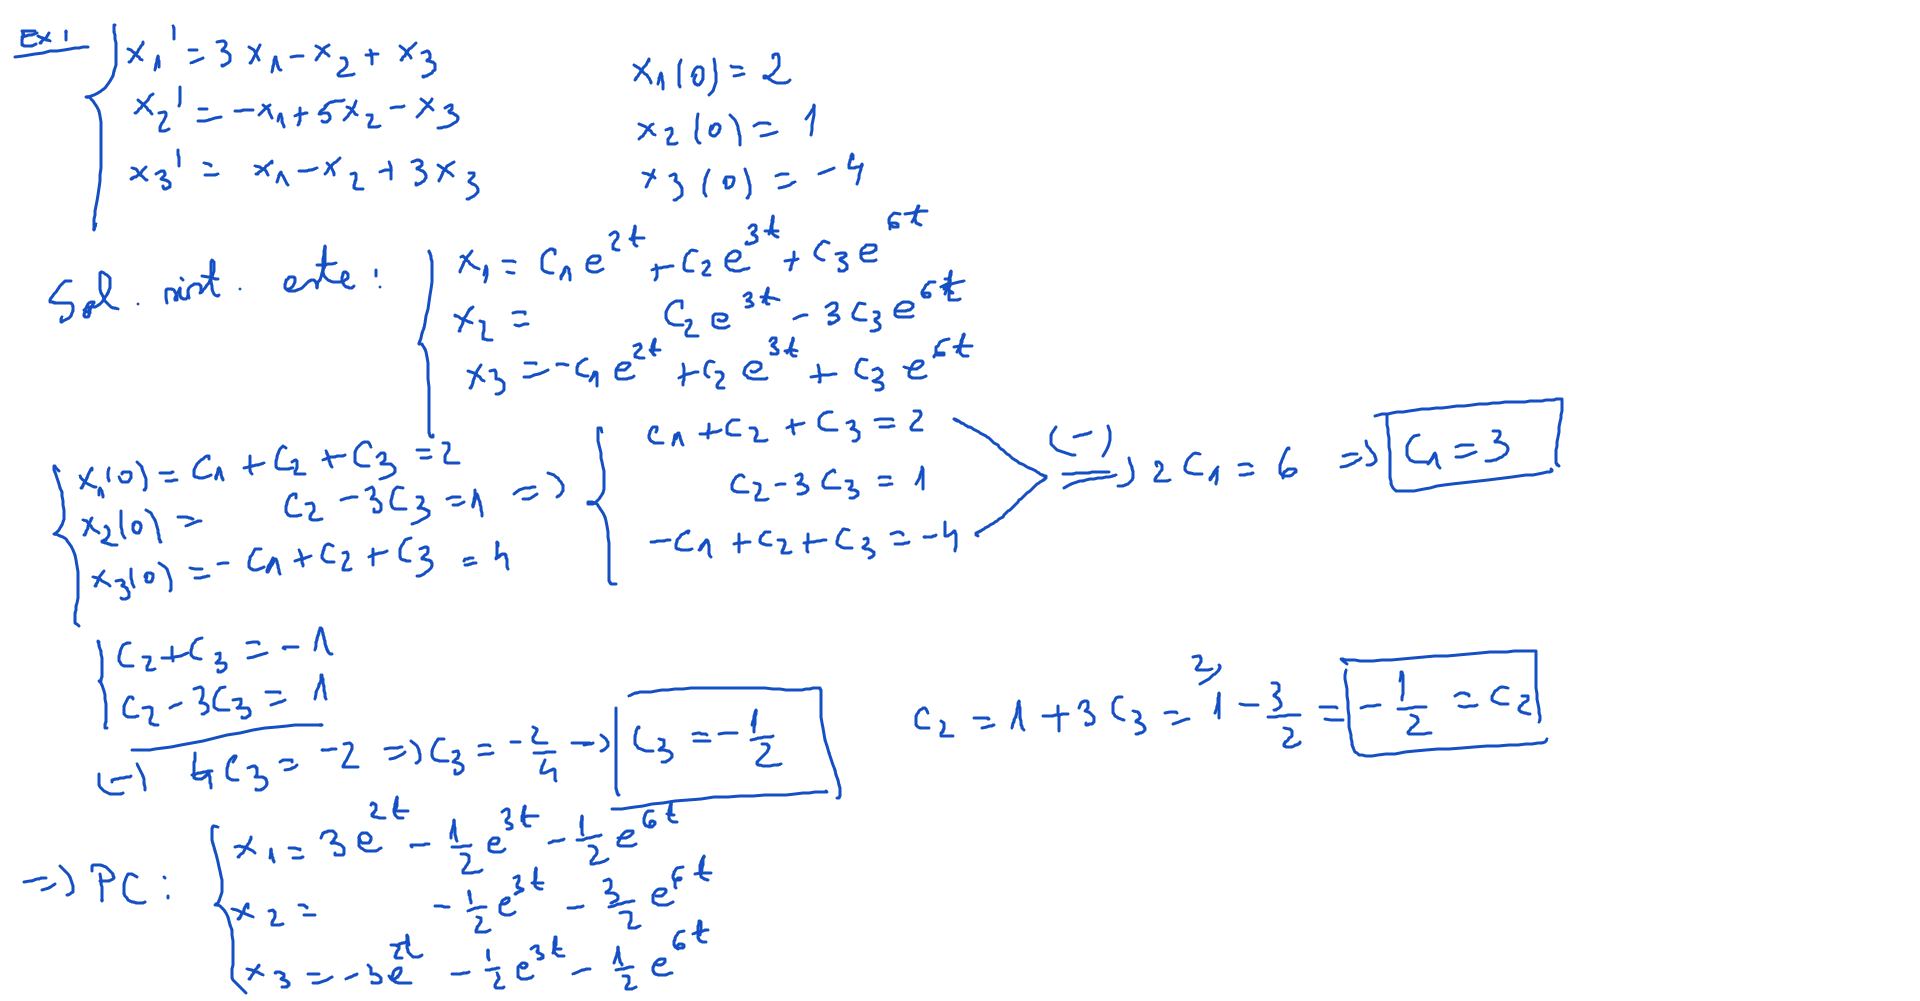 Ex 1
x₁' = 3x₁ - x₂ + x₃    x₁(0) = 2
x₂' = -x₁ + 5x₂ - x₃    x₂(0) = 1
x₃' = x₁ - x₂ + 3x₃    x₃(0) = -4
Sol. sist. este:
x₁ = C₁e^{2t} + C₂e^{3t} + C₃e^{6t}
x₂ = C₂e^{3t} - 3C₃e^{6t}
x₃ = -C₁e^{2t} + C₂e^{3t} + C₃e^{6t}
x₁(0) = C₁ + C₂ + C₃ = 2
x₂(0) = C₂ - 3C₃ = 1
x₃(0) = -C₁ + C₂ + C₃ = 4
=> C₁ + C₂ + C₃ = 2
C₂ - 3C₃ = 1
-C₁ + C₂ + C₃ = -4
(-) => 2C₁ = 6 => C₁ = 3
C₂ + C₃ = -1
C₂ - 3C₃ = 1
(-) 4C₃ = -2 => C₃ = -2/4 -> C₃ = -1/2
C₂ = 1 + 3C₃ = ²⁾1 - 3/2 = -1/2 = C₂
=> PC:
x₁ = 3e^{2t} - 1/2 e^{3t} - 1/2 e^{6t}
x₂ = -1/2 e^{3t} - 3/2 e^{6t}
x₃ = -3e^{2t} - 1/2 e^{3t} - 1/2 e^{6t}